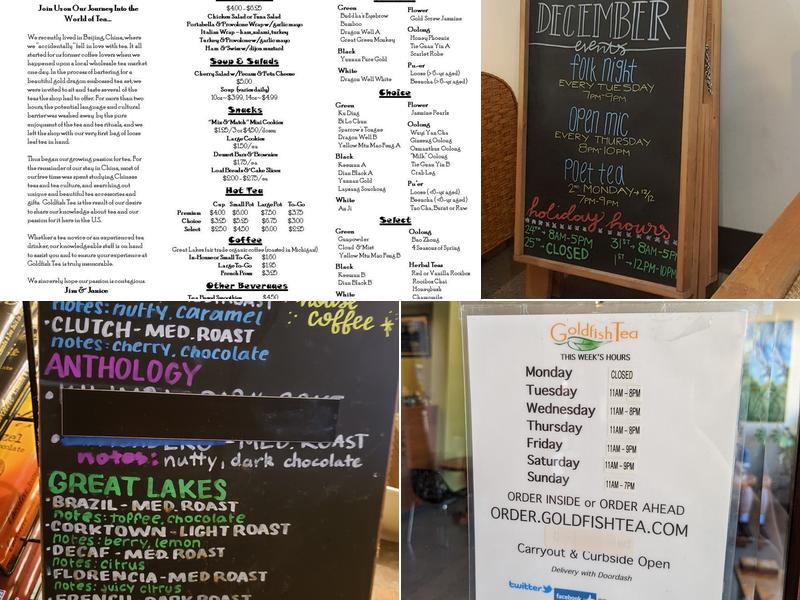 Join Us on Our Journey Into the
World of Tea...
We recently lived in Beijing, China, where
we "accidentally" fell in love with tea. It all
started for us former coffee lovers when we
happened upon a local wholesale tea market
one day. In the process of bartering for a
beautiful gold dragon embossed tea set, we
were invited to sit and taste several of the
teas the shop had to offer. For more than two
hours, the potential language and cultural
barrier was washed away by the pure
enjoyment of the tea and tea rituals, and we
left the shop with our very first bag of loose
leaf tea in hand.
Thus began our growing passion for tea. For
the remainder of our stay in China, most of
our free time was spent studying Chinese
teas and tea culture, and searching out
unique and beautiful tea accessories and
gifts. Goldfish Tea is the result of our desire
to share our knowledge about tea and our
passion for it here in the U.S.
Whether a tea novice or an experienced tea
drinker, our knowledgeable staff is on hand
to assist you and to ensure your experience at
Goldfish Tea is truly memorable.
We sincerely hope our passion is contagious.
Jim & Janice
$4.00 - $6.25
Chicken Salad or Tuna Salad
Portabella & Provolone Wrap w/garlic mayo
Italian Wrap - ham, salami, turkey
Turkey & Provolone w/garlic mayo
Ham & Swiss w/dijon mustard
Soup & Salads
Cherry Salad w/Pecans & Feta Cheese
$5.00
Soup (varies daily)
10oz - $3.99, 14oz - $4.99
Snacks
"Mix & Match" Mini Cookies
$1.25/3 or $4.50/dozen
Large Cookies
$1.50/ea
Dessert Bars & Brownies
$1.75/ea
Loaf Breads & Cake Slices
$2.00 - $2.75/ea
Hot Tea
Cup Small Pot Large Pot To-Go
Premium $4.00 $6.00 $7.50 $3.75
Choice $3.25 $5.25 $6.75 $3.00
Select $2.50 $4.50 $6.00 $2.25
Coffee
Great Lakes fair trade organic coffee (roasted in Michigan)
In-House or Small To-Go $1.60
Large To-Go $1.95
French Press $3.25
Other Beverages
$4.50
Green
Buddha's Eyebrow
Bamboo
Dragon Well A
Great Green Monkey
Black
Yunnan Pure Gold
White
Dragon Well White
Flower
Gold Screw Jasmine
Oolong
Honey Phoenix
Tie Guan Yin A
Scarlet Robe
Pu-er
Loose (>6-yr aged)
Beencha (>6-yr aged)
Choice
Green
Ku Ding
Bi Lo Chun
Sparrow's Tongue
Dragon Well B
Yellow Mtn Mao Feng A
Black
Keemun A
Dian Black A
Yunnan Gold
Lapsang Souchong
White
An Ji
Flower
Jasmine Pearls
Oolong
Wuyi Yan Cha
Ginseng Oolong
Osmanthus Oolong
"Milk" Oolong
Tie Guan Yin B
Crab Leg
Pu'er
Loose (<6-yr aged)
Beencha (<6-yr aged)
Tuo Cha, Burnt or Raw
Select
Green
Gunpowder
Cloud & Mist
Yellow Mtn Mao Feng B
Black
Keemun B
Dian Black B
White
Oolong
Bao Zhong
4 Seasons of Spring
Herbal Teas
Red or Vanilla Rooibos
Rooibos Chai
Honeybush
Chamomile
DECEMBER
events
folk night
EVERY TUESDAY
7PM-9PM
OPEN MIC
EVERY THURSDAY
8PM-10PM
POET TEA
2ND MONDAY → 12/12
7PM-9PM
holiday hours
24TH - 8AM-5PM
25TH - CLOSED
31ST - 8AM-5PM
1ST → 12PM-10PM
notes: nutty, caramel
house
coffee
· CLUTCH - MED. ROAST
notes: cherry, chocolate
ANTHOLOGY
- MED. ROAST
notes: nutty, dark chocolate
GREAT LAKES
· BRAZIL - MED. ROAST
notes: toffee, chocolate
· CORKTOWN - LIGHT ROAST
notes: berry, lemon
· DECAF - MED. ROAST
notes: citrus
· FLORENCIA - MED ROAST
notes: juicy citrus
· FRENCH - DARK ROAST
Goldfish Tea
THIS WEEK'S HOURS
Monday CLOSED
Tuesday 11AM - 8PM
Wednesday 11AM - 8PM
Thursday 11AM - 8PM
Friday 11AM - 9PM
Saturday 11AM - 9PM
Sunday 11AM - 7PM
ORDER INSIDE or ORDER AHEAD
ORDER.GOLDFISHTEA.COM
Carryout & Curbside Open
Delivery with Doordash
twitter
facebook